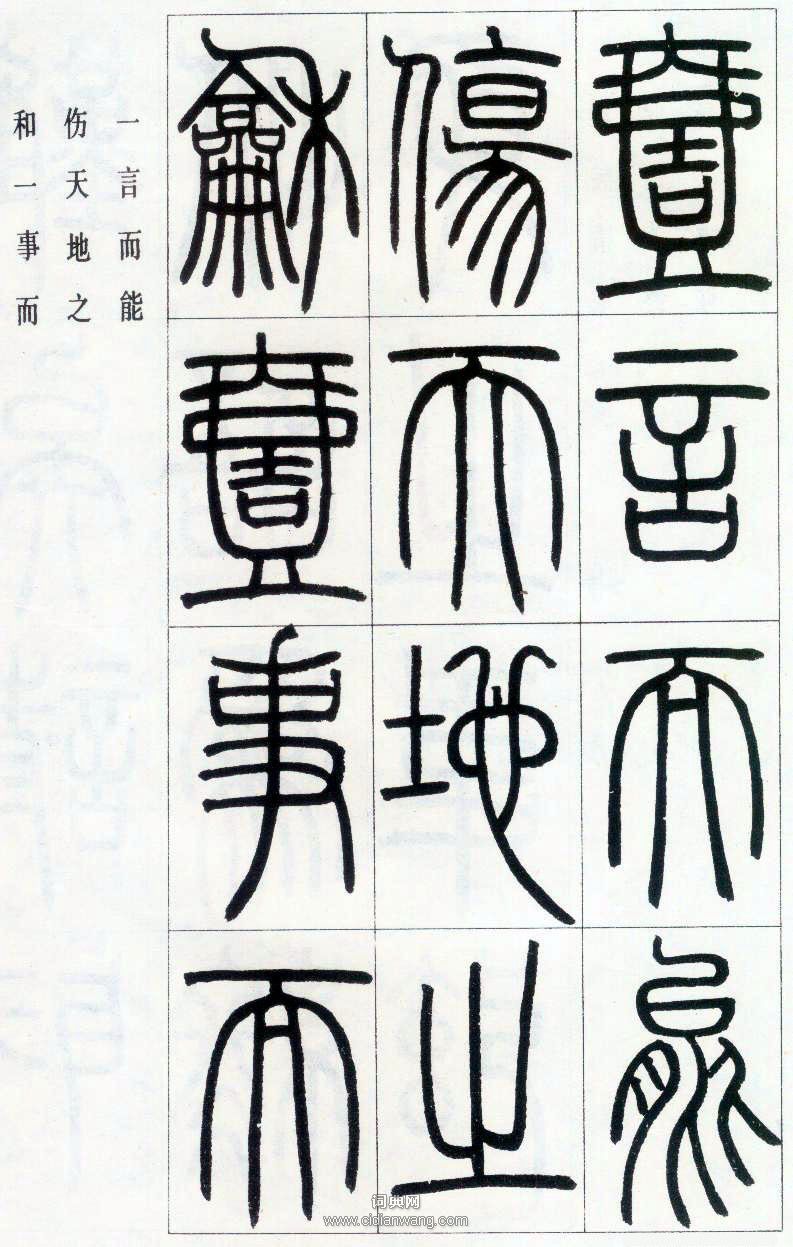 壹言而能
傷天地之
龢壹事而
一言而能
伤天地之
和一事而
词典网
www.cidianwang.com